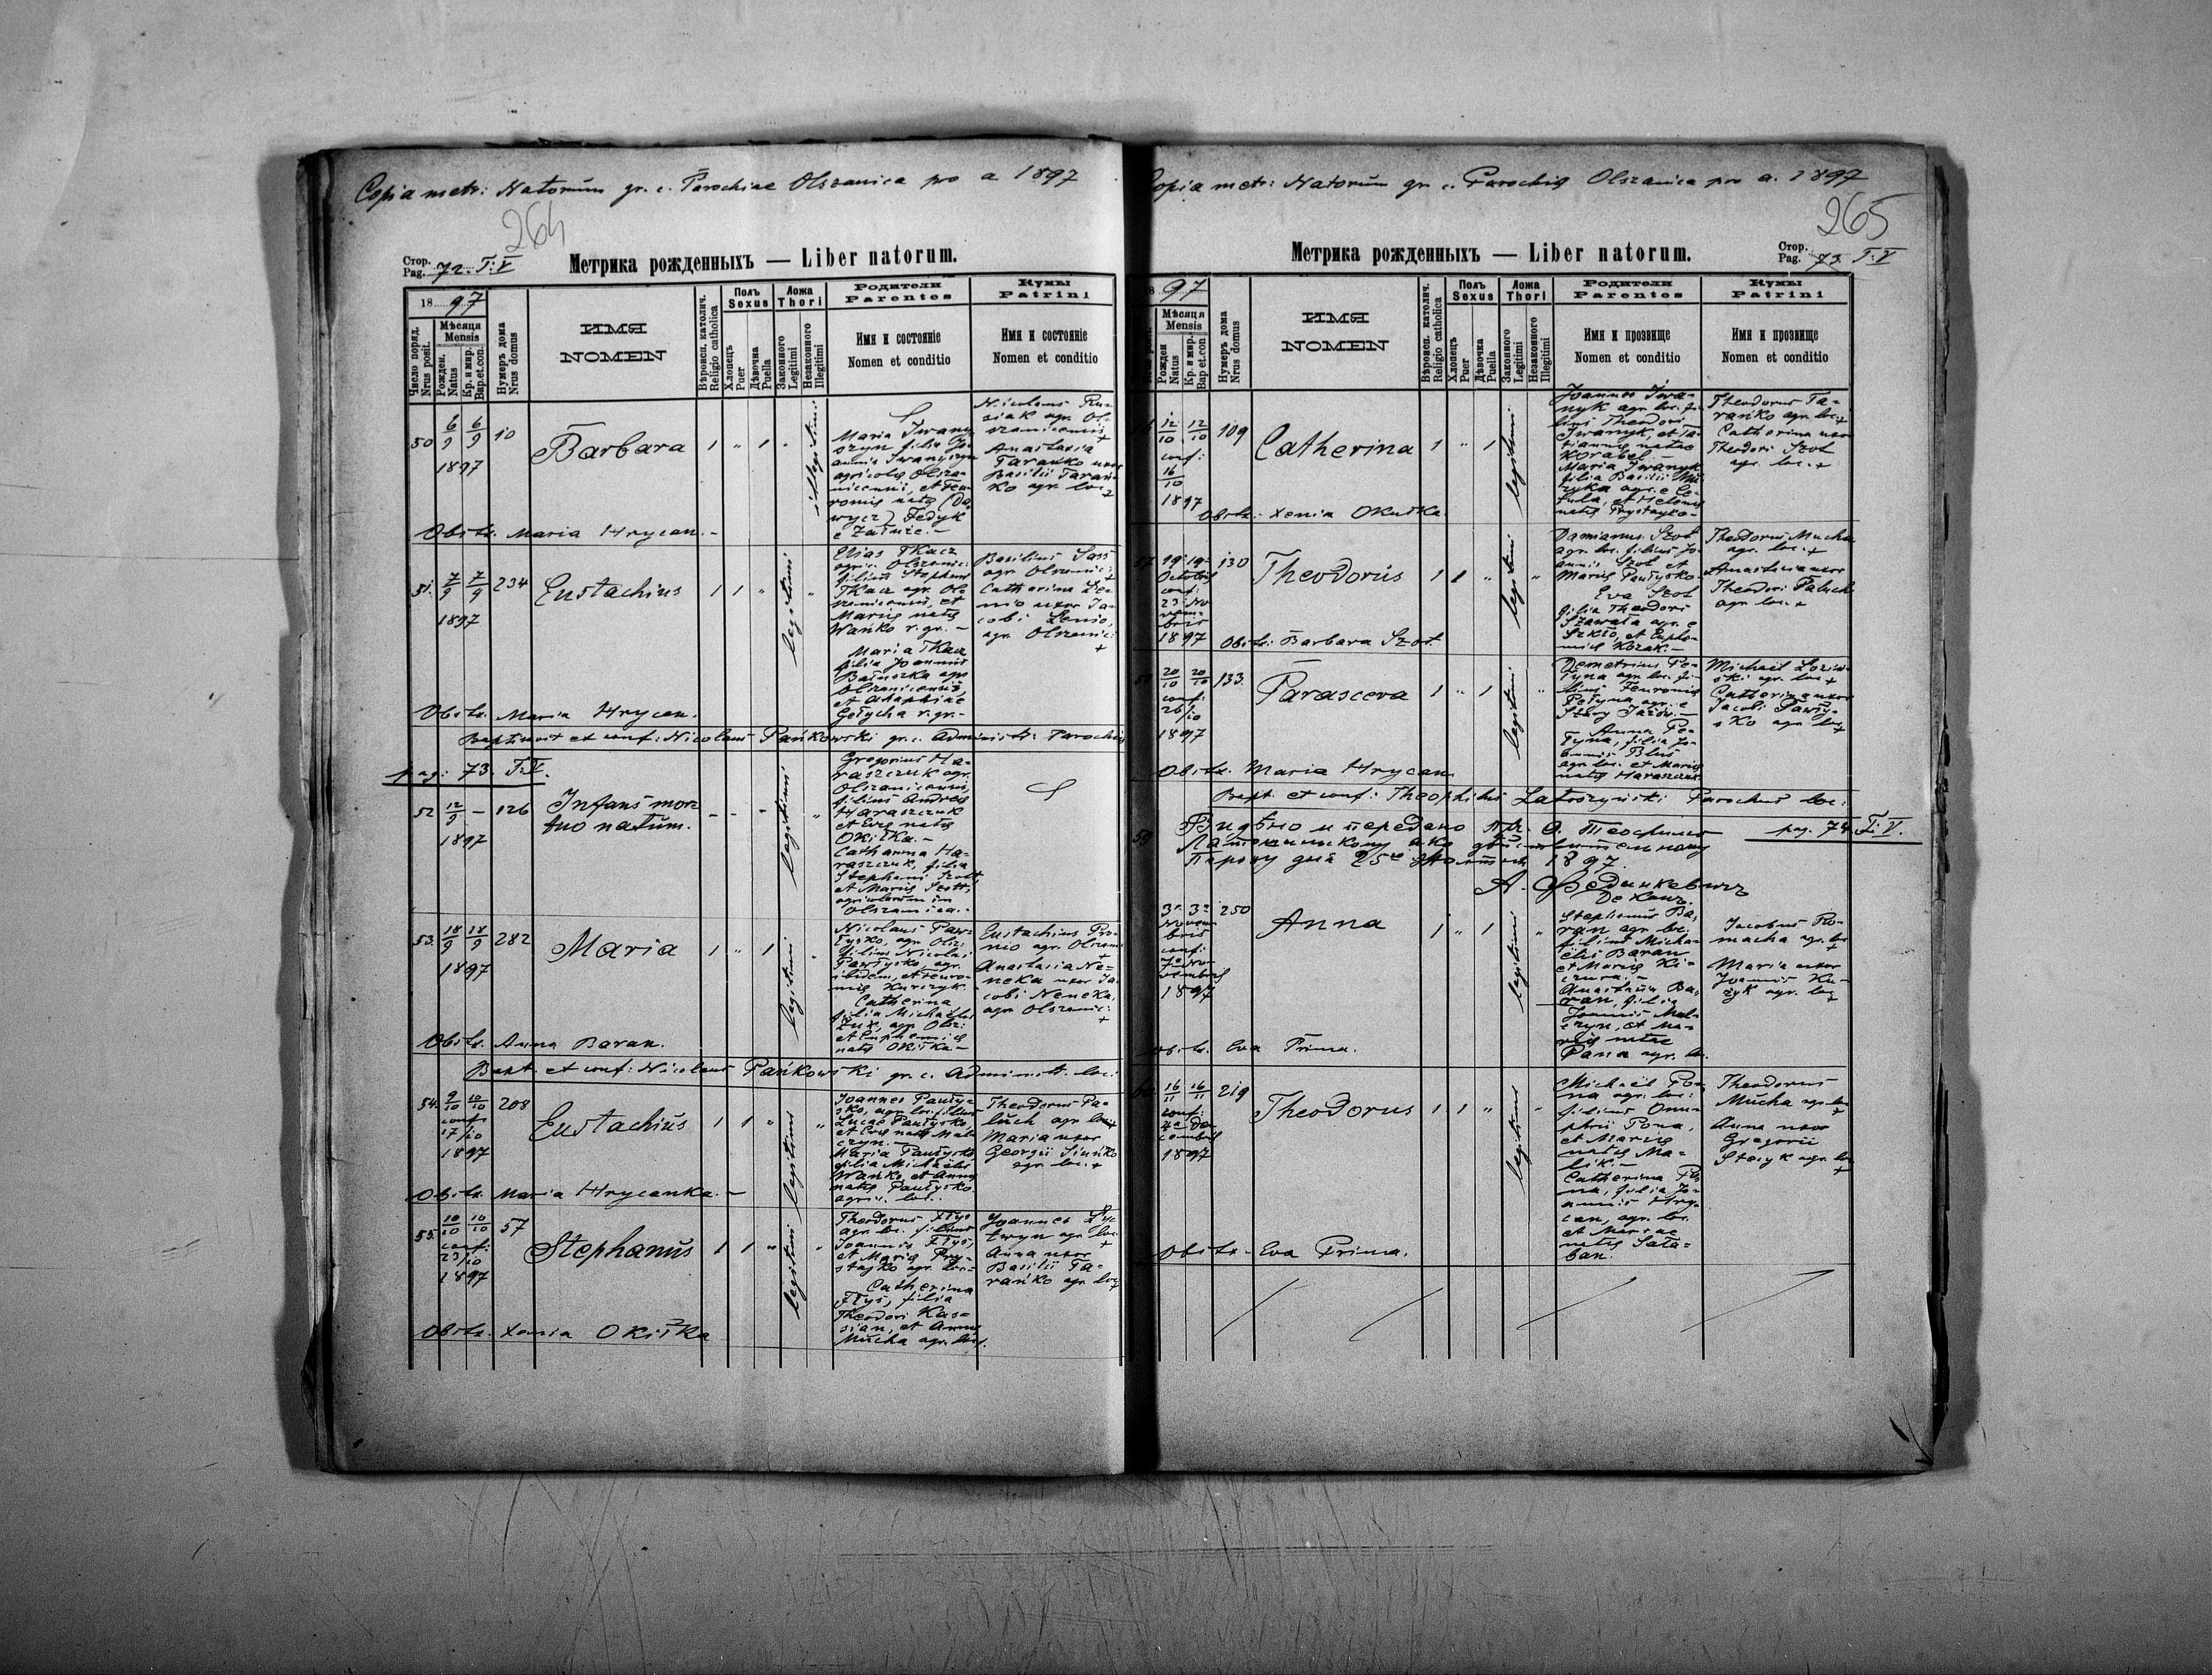 Copia metr: Natorum gr. c. Parochiae Olszanica pro a 1897
264
Стор.
Pag. 72. T: V
Метрика рожденныхъ — Liber natorum.
18 97
Число поряд.
Nrus posit.
Мѣсяця
Mensis
Рожден.
Natus
Кр. и мир.
Bap. et con.
Нумеръ дома
Nrus domus
ИМЯ
NOMEN
Вѣроисп. католич.
Religio catholica
Полъ
Sexus
Хлопецъ
Puer
Дѣвочка
Puella
Ложа
Thori
Законного
Legitimi
Незаконного
Illegitimi
Родители
Parentes
Имя и состояніе
Nomen et conditio
Кумы
Patrini
Имя и состояніе
Nomen et conditio
50 6/9 6/9 10 Barbara 1 " 1 " illegitimi
1897
Maria Iwany
szyn filia Jo-
annis Iwanyszyn
agricolae Olsza-
nicensis, et Feu-
roniae natae (Da
wycz) Fedyk
e Zaluże.-
Nicolaus Ru-
siak agr. Ol-
szanicensis +
Anastasia
Tarańko uxor
Basilii Tarań-
ko agr. loc. +
Obstr. Maria Hrycan.-
51. 7/9 7/9 234 Eustachius 1 1 " legitimi "
1897
Elias Tkacz
agric. Olszanic:
filius Stephani
Tkacz agr. Ol-
szanicensis, et
Mariae natae
Wańko r. gr.-
Maria Tkacz
filia Joannis
Baluszka agr.
Olszanicensis,
et Agaphiae
Gołycha r. gr.-
Basilius Sass
agr. Olszanic: +
Catharina Le-
nio uxor Ja-
cobi Lenio,
agr. Olszanic: +
Obstr. Maria Hrycan.
Baptisavit et conf: Nicolaus Pańkowski gr. c. Administr: Parochiae
pag: 73. T: V.
52 12/9 - 126 Infans mor
tuo natum. - - - legitimi "
1897
Gregorius Ha-
raszczuk agr.
Olszanicensis,
filius Andreae
Haraszczuk
et Evae natae
Okiłka.-
Catharina Ha-
raszczuk, filia
Stephani Szott,
et Mariae Szott,
agricolarum in
Olszanica.-
53. 18/9 18/9 282 Maria 1 " 1 legitimi "
1897
Nicolaus Paw-
łysko, agr. Olsz:
filius Nicolai
Pawłysko, agr.
ibidem, et Feuro-
niae Kurczyk.
Catharina
filia Michaelis
Żuk, agr. Olsz:
et Euphemiae
natae Okiłka.-
Eustachius Pro-
nio agr. Olszanic +
Anastasia Ne-
neka uxor Ja-
cobi Neneka,
agr. Olszanic: +
Obstr. Anna Baran.
Bapt. et conf: Nicolaus Pańkowski gr. c. Administr. loc:
54. 9/10 10/10 208 Eustachius 1 1 " legitimi "
conf:
17/10
1897
Joannes Pauły-
sko, agr. loc. filius
Lucae Paułysko,
et Evae natae Mal-
czyn.-
Maria Paułysko
filia Michaelis
Wańko, et Annae
natae Paułysko
agric. loc.
Theodorus Pa-
luch agr. loc. +
Maria uxor
Georgii Siuńko
agr. loc. +
Obstr. Maria Hrycanka.-
55. 10/10 10/10 57 Stephanus 1 1 " legitimi "
conf:
23/10
1897
Theodorus Flys
agr. loc. filius
Joannis Flys,
et Maria Pry-
stajko agr. loc.-
Catherina
Flys, filia
Theodori Kas-
sian, et Annae
Mucha agr. loci.
Joannes
agr. loc. +
Anna uxor
Basilii Ta-
rańko agr. loc. +
Obstr. Xenia Okiłka
Copia metr: Natorum gr. c. Parochiae Olszanica pro a. 1897
265
Метрика рожденныхъ — Liber natorum.
Стор.
Pag. 73. T: V
18 97
Мѣсяця
Mensis
Рожден
Natus
Кр. и мир.
Bap. et con.
Нумеръ дома
Nrus domus
ИМЯ
NOMEN
Вѣроисп. католич.
Religio catholica
Полъ
Sexus
Хлопецъ
Puer
Дѣвочка
Puella
Ложа
Thori
Законного
Legitimi
Незаконного
Illegitimi
Родители
Parentes
Имя и прозвище
Nomen et conditio
Кумы
Patrini
Имя и прозвище
Nomen et conditio
12/10 12/10 109 Catherina 1 " 1 legitimi
conf:
16/10
1897
Joannes Iwa-
nyk agr. loc. fi-
lius Theodori
Iwanyk, et Ta-
tiannae natae
Korabel.-
Maria Iwanyk
filia Basilii Mu
zyka agr. e Ce-
tula, et Helenae
natae Prystayko-
Theodorus Ta-
rańko agr. loc. +
Catherina uxor
Theodori Szot
agr. loc. +
Obstr. Xenia Okiłka.
57. 19- 19- 130 Theodorus 1 1 " legitimi "
Octobris
conf:
23: No
vem-
bris
1897
Damianus Szot
agr. loc. filius Jo-
annis Szot et
Mariae Paułysko-
Eva Szot
filia Theodori
Szawała agr. e
Szkło, et Eupho-
miae Kozak.-
Theodorus Mucha
agr. loc. +
Anastasia uxor
Theodori Paluch
agr. loc. +
Obstr: Barbara Szot.
20/10 20/10 133. Parasceva 1 " 1 legitimi "
conf:
26/10
1897
Demetrius Po-
tyna agr. loc. fi-
lius Feuroniae
Potyna, agr. e
Stary Jażów.-
Anna Po-
tyna, filia Jo-
annis Blus
agr. loc. et Mariae
natae Haraszczuk.
Michael Loziń-
ski agr. loc. +
Catherina uxor
Jacobi Pawły-
sko agr. loc. +
Obstr. Maria Hrycan
Bapt. et conf: Theophilus Latoszyński Parochus loc:
59 Видѣно и передано пр. о. Теофилю pag. 74. T: V.
Латошинскому яко дѣйствительному
Пароху дня 25го 1897.
А. Фединкевичъ
Деканъ.
3a 3a 250 Anna 1 " 1 legitimi "
Novem-
bris
conf:
7a No-
vembris
1897
Stephanus Ba-
ran agr. loc.
filius Micha-
ëlis Baran
et Mariae Ki-
czura.-
Anastasia Ba-
ran, filia
Joannis Mal-
czyn, et Ma-
riae natae
Pana agr. loc.
Jacobus Ro-
macha agr. loc +
Maria uxor
Joannis Ku-
zyk agr. loc +
Obstr. Eva Prima.
16/11 16/11 219 Theodorus 1 1 " legitimi "
conf:
4a De-
cembris
1897
Michaël Po-
na agr. loc:
filius Onu-
phrii Pona,
et Mariae
natae Ma-
lik.-
Catherina Po-
na, filia Jo-
annis Hry-
can, agr. loc.
et Mariae
natae Sała-
ban.
Theodorus
Mucha agr. loc +
Anna uxor
Gregorii
Stecyk agr. loc +
Obstr.- Eva Prima.